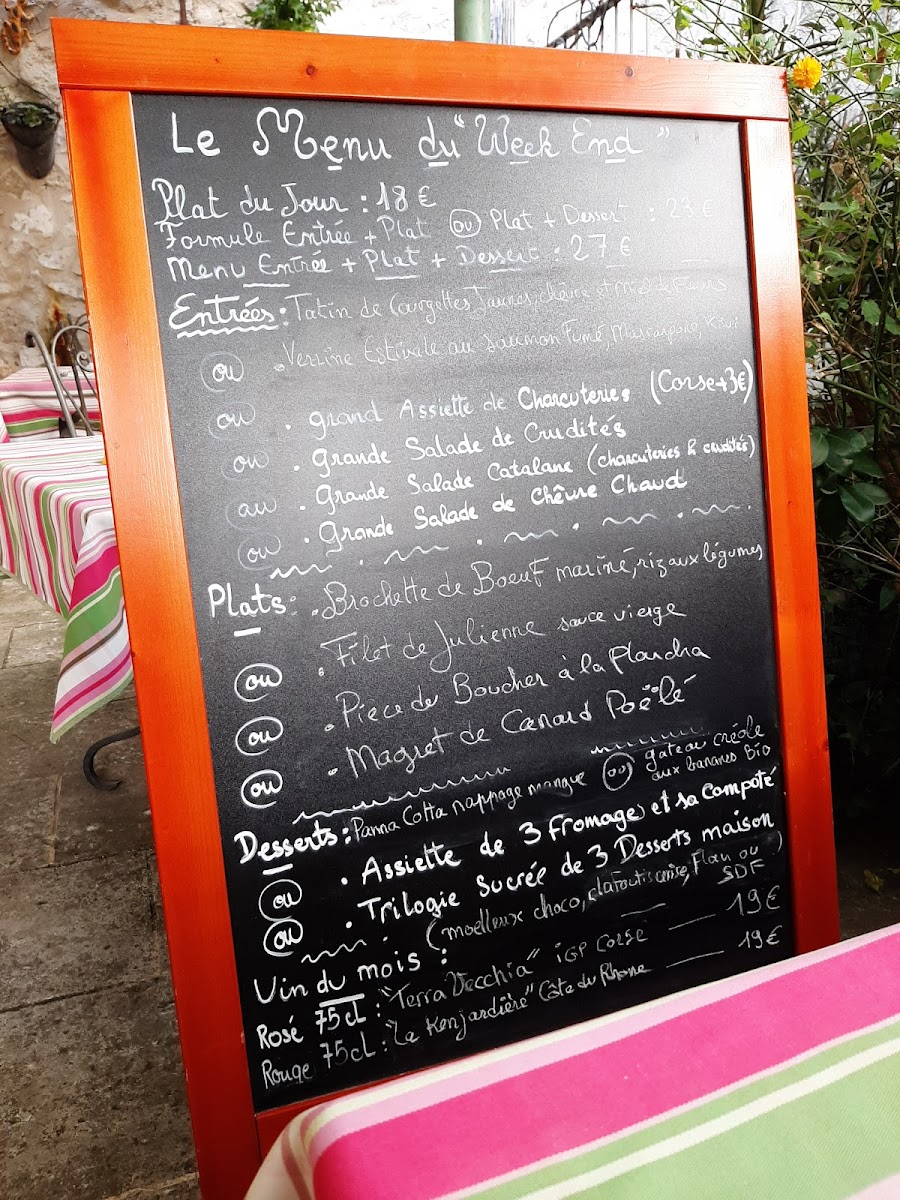 Le Menu du "Week End"
Plat du Jour : 18 €
Formule Entrée + Plat ou Plat + Dessert : 23 €
Menu Entrée + Plat + Dessert : 27 €
Entrées : Tatin de Courgettes Jaunes, chèvre et miel de Fleurs
ou . Verrine Estivale au saumon Fumé, Mascarpone, Kiwi
ou . grand Assiette de Charcuteries (Corse+3€)
ou . grande Salade de Crudités
au . grande Salade Catalane (charcuteries & crudités)
ou . grande Salade de Chèvre Chaud
Plats : . Brochette de Boeuf mariné, riz aux légumes
ou . Filet de Julienne sauce vierge
ou . Piece de Boucher à la Plancha
ou . Magret de Canard Poëlé
Desserts : Panna Cotta nappage mangue ou gateau créole
aux bananes Bio
ou . Assiette de 3 fromages et sa compoté
ou . Trilogie Sucrée de 3 Desserts maison
(moelleux choco, clafoutis cerise, Flan ou SDF)
Vin du mois :
Rosé 75cl : "Terra Vecchia" iGP Corse 19 €
Rouge 75cl : "La Kenjardière" Côte du Rhone 19 €